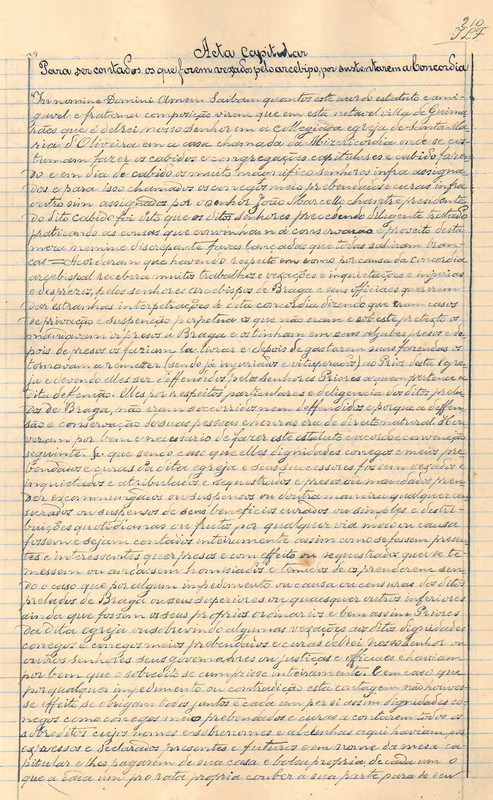 210
Acta Capitular
Para ser contados os que forem vexados pelo arcebispo, por sustentarem a Concordia
In nomine Domini Amem Saibam quantos este acordo estatuto e ami-
gavel e fraternal composição virem que em esta notavel villa de Guima-
rães que é d'elrei nosso senhor em a collegiada egreja de Santa Ma-
ria d'Oliveira em a casa chamada da Misericordia onde se cos-
tumam fazer os cabidos e congregações capitulares e cabido fazen-
do e em dia de cabido os muito magnificos senhores infra assigna-
dos e para isso chamados os conegos meio prebendados e curas infra
outro sim assignados por o senhor João Marcellos chantre presidente
do dito cabido foi dito que os ditos senhores precedendo diligente tratado
praticando as cousas que convinham á conservação e proveito desta
meza nemine discrepante favas lançadas que todas sahiram bran-
cas = Acordaram que havendo respeito em como por causa da concordia
arcebispal recebera muitos trabalhos e vexações e inquietações e injurias
e desprezos, pelos senhores Arcebispos de Braga e seus officiaes querendo
dar estranhas interpretações á dita concordia dizendo que eram casos
de privação e suspenção perpetua os que não eram e sob este pretexto os
mandavam vir presos a Braga e os tinham em seus aljubes presos e de-
pois de presos os faziam la livrar e depois de gastarem suas fazendas os
tornavam a remeter (sendo já injuriados e vituperados) ao Prior desta Egre-
ja e devendo elles ser deffendidos pelos Senhores Priores a quem pertence a
dita defenção. Elles por respeitos particulares e diligencia dos ditos prela-
dos de Braga, não eram soccorridos nem deffendidos e porque a deffen-
são e conservação de suas pessoas e honras era de direito natural. Hou-
veram por bem e necessario de fazer este estatuto acordo e convenção
seguinte. Se que sendo caso que elles dignidades conegos e meios pre-
bendados e curas da dita egreja e seus successores fossem vexados e
inquietados e atribulados e sequestrados e presos ou mandados pren-
der excommungados ou suspensos ou doutra maneira qualquer cen-
surados ou suspensos de seus beneficios curados ou simples e destri-
buições quotidianas ou fructos por qualquer via modo ou causa
fossem e sejam contados inteiramente assim como se fossem presen-
tes e interessentes quer presos e com effeito ou sequestrados quer se te-
messem ou andassem homisiados e temidos de os prenderem sen-
do o caso que por algum impedimento ou causa ou censuras dos ditos
prelados de Braga ou seus superiores ou quaesquer outros inferiores
ainda que fossem os seus proprios ordinarios e bem assim Priores
da dita egreja ou sobrevindo algumas vexações aos ditos dignidades
conegos e conegos meios prebendados e curas delrei nosso senhor ou
outros senhores seus governadores ou justiças e officiaes e haviam
por bem que o sobredito se cumprisse inteiramente. E em caso que
por qualquer impedimento ou contradição esta contagem não houves-
se effeito se obrigam todos juntos e cada um per si assim dignidades co-
negos como conegos meio prebendados e curas a contarem todos os
sobreditos cujos nomes e sobrenomes e alcunhas aqui haviam por
expressos e declarados presentes e futuros e em nome da mesa ca-
pitular e lhes pagarem de sua casa e bolsa propria, de cada um o
que a cada um pro rata propria couber a sua parte para do seu